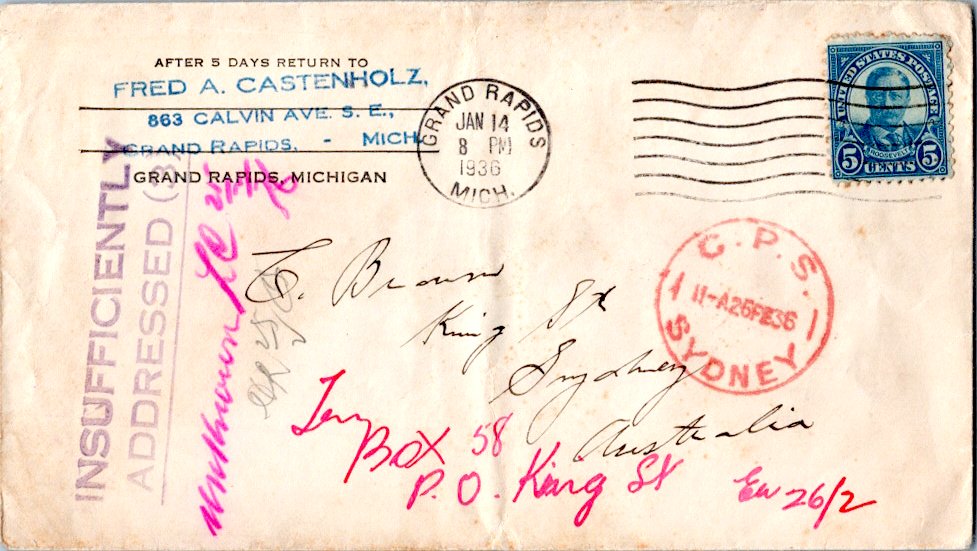 AFTER 5 DAYS RETURN TO
FRED A. CASTENHOLZ,
863 CALVIN AVE. S. E.,
GRAND RAPIDS, - MICH.
GRAND RAPIDS, MICHIGAN
GRAND RAPIDS
JAN 14
8 PM
1936
MICH.
UNITED STATES POSTAGE
ROOSEVELT
5 CENTS 5
INSUFFICIENTLY
ADDRESSED (3)
unknown
G.P.S.
1 11-A26FE36 1
SYDNEY
E. Brown
King St
Sydney
Australia
Try
BOX 58
P.O. King St
26/2